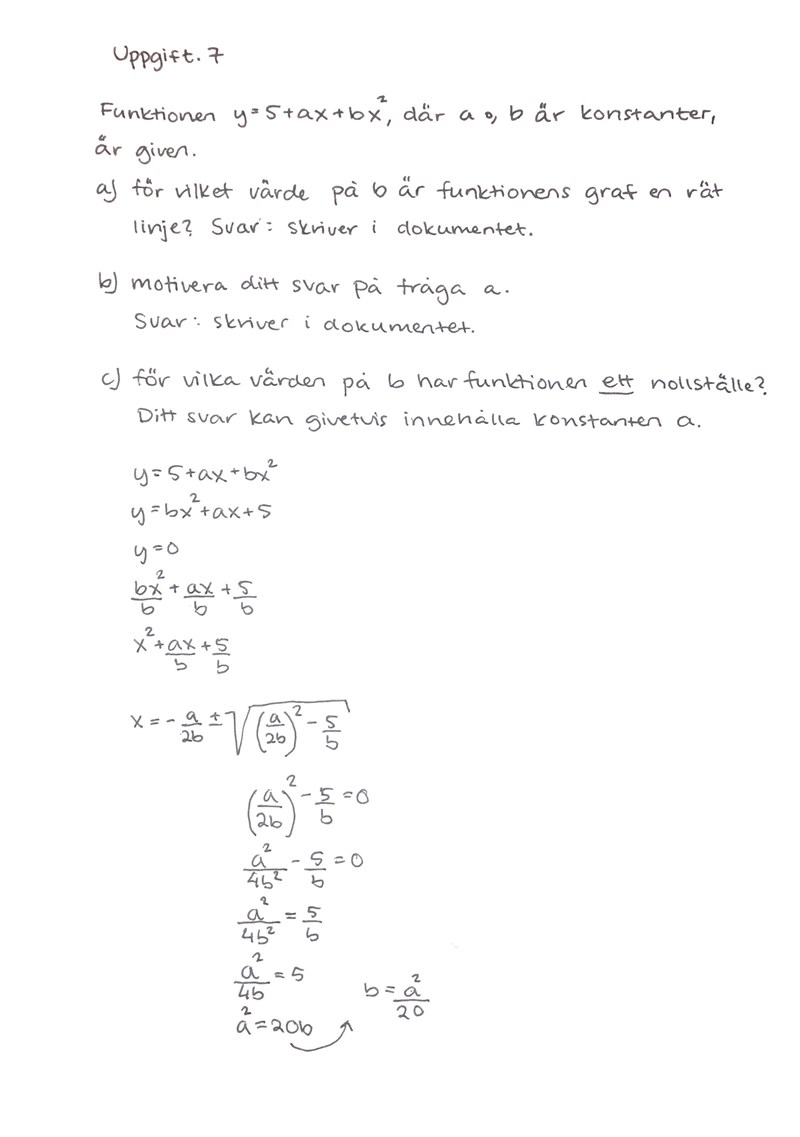 Uppgift. 7
Funktionen y = 5+ax+bx², där a o, b är konstanter,
är given.
a) för vilket värde på b är funktionens graf en rät
linje? Svar: skriver i dokumentet.
b) motivera ditt svar på fråga a.
Svar: skriver i dokumentet.
c) för vilka värden på b har funktionen ett nollställe?
Ditt svar kan givetvis innehålla konstanten a.
y = 5+ax+bx²
y = bx²+ax+5
y = 0
bx²/b + ax/b + 5/b
x² + ax/b + 5/b
x = - a/2b ± √((a/2b)² - 5/b)
(a/2b)² - 5/b = 0
a²/4b² - 5/b = 0
a²/4b² = 5/b
a²/4b = 5
a² = 20b
b = a²/20